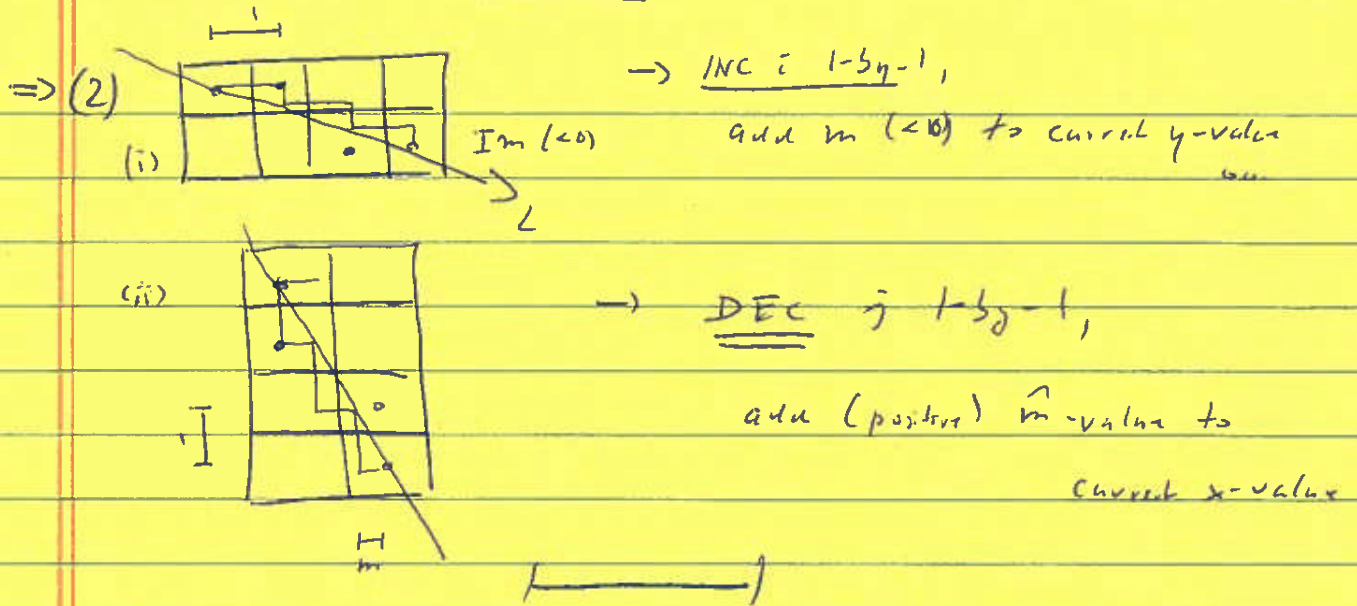 1
=> (2) -> INC i 1-by-1,
(i) Im (<0) add m (<0) to current y-value
L
(ii) -> DEC j 1-by-1,
add (positive) m̂-value to
1
current x-value
m